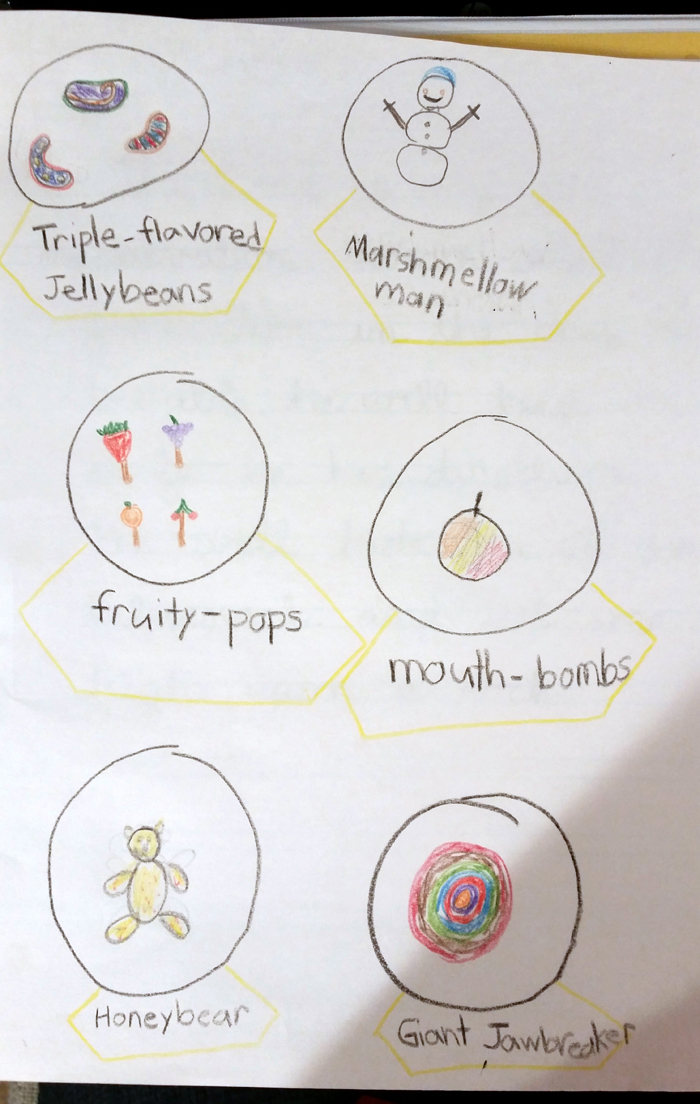 Triple-flavored
Jellybeans
Marshmellow
man
fruity-pops
mouth-bombs
Honeybear
Giant Jawbreaker